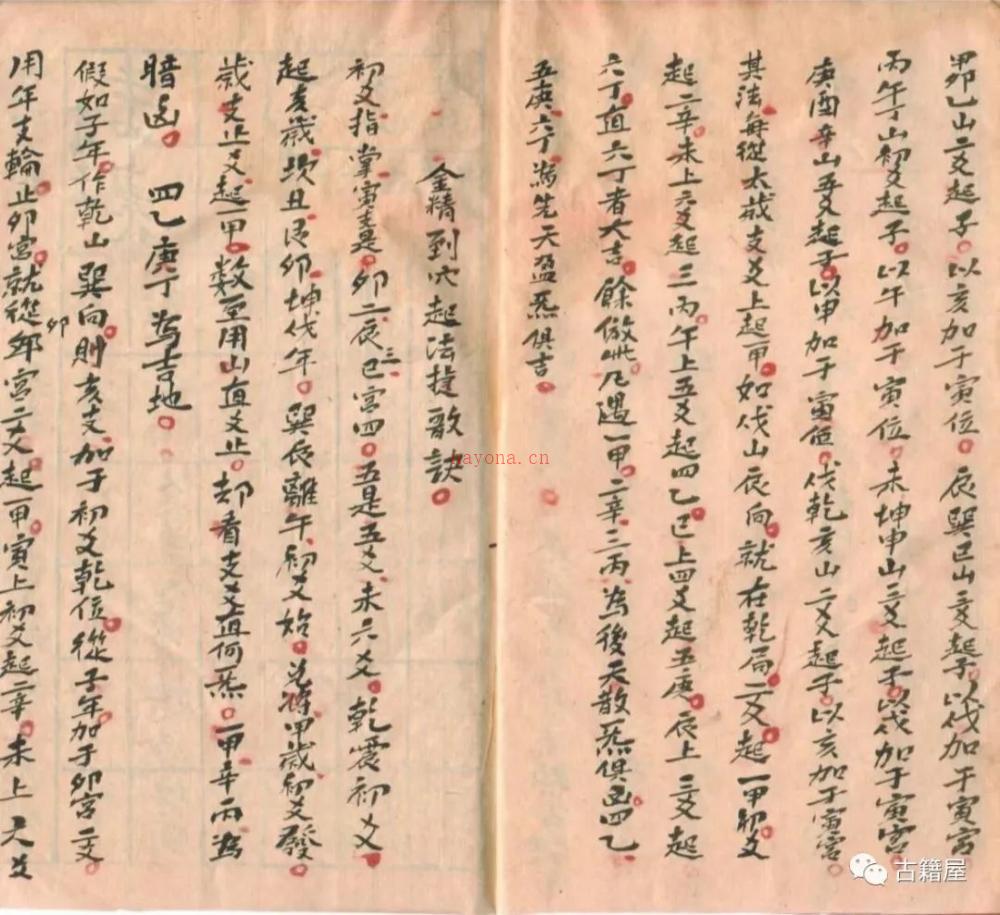 卯乙山二爻起子。以亥加于寅位。辰巽巳山三爻起子。以戌加于寅宫。
丙午丁山初爻起子。以午加于寅位。未坤申山三爻起子。以戌加于寅宫。
庚酉辛山五爻起子。以申加于寅位。戌乾亥山二爻起子。以亥加于寅宫。
其法每從太歲支爻上起甲。如戌山辰向。就在乾局二爻起一甲。初爻
起二辛。未上六爻起三丙。午上五爻起四乙。巳上四爻起五庚。辰上三爻起
六丁。直六丁者大吉。餘倣此。凡遇一甲。二辛。三丙。為後天散炁俱凶。四乙。
五庚。六丁為先天盈炁俱吉。
金精到穴起法捷歌訣。
初爻指掌寅支是。卯二辰三巳宫四。五是五爻未六爻。乾震初爻
起亥歲。坎丑艮卯坤戌年。巽辰離午初爻始。兑將甲歲初爻發。
歲支止爻起一甲。数至用山直爻止。却看支爻直何炁。一甲辛丙為
暗凶。四乙庚丁為吉地。
假如子年。作乾山巽向。則亥支加于初爻乾位。從子年加于卯宫二爻。
用年支輪止卯宫。就從卯宫二爻起一甲。寅上初爻起二辛。未上六爻
卯
hayona.cn
古籍屋